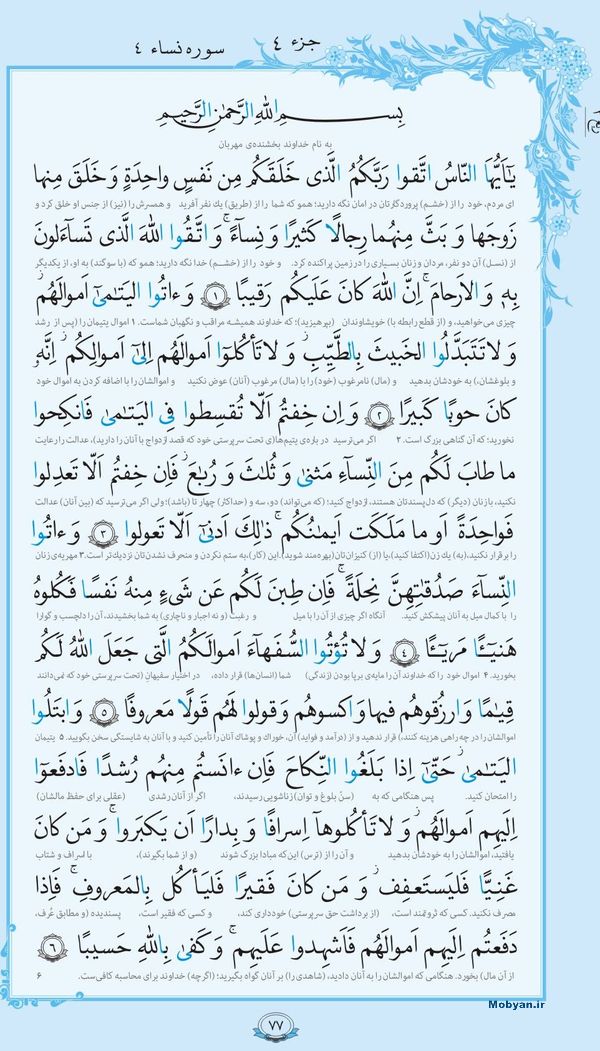 جزء ٤
سوره نساء ٤
بِسمِ اللهِ الرَّحمٰنِ الرَّحيمِ
به نام خداوند بخشنده‌ی مهربان
يٰأَيُّهَا النّاسُ اتَّقوا رَبَّكُمُ الَّذي خَلَقَكُم مِن نَفسٍ واحِدَةٍ وَ خَلَقَ مِنها
ای مردم، خود را از (خشم) پروردگارتان در امان نگه دارید؛ همو که شما را از (طریق) یك نفر آفرید و همسرش را (نیز) از جنس او خلق کرد و
زَوجَها وَ بَثَّ مِنهُما رِجالًا كَثيرًا وَ نِساءً ۚ وَ اتَّقُوا اللهَ الَّذي تَساءَلونَ
از (نسل) آن دو نفر، مردان و زنان بسیاری را در زمین پراکنده کرد. و خود را از (خشم) خدا نگه دارید؛ همو که با (سوگند) به او، از یکدیگر
بِهٖ وَ الاَرحامَ ۚ اِنَّ اللهَ كانَ عَلَيكُم رَقيبًا ١ وَ ءاتُوا اليَتامىٰ اَموالَهُم ۖ
چیزی می‌خواهید، و (از قطع رابطه با) خویشاوندان (بپرهیزید)؛ که خداوند همیشه مراقب و نگهبان شماست. ١ اموال یتیمان را (پس از رشد
وَ لا تَتَبَدَّلُوا الخَبيثَ بِالطَّيِّبِ ۖ وَ لا تَأكُلوٓا اَموالَهُم اِلىٰٓ اَموالِكُم ۚ اِنَّهٗ
و بلوغشان)، به خودشان بدهید و (مال) نامرغوب (خود) را با (مال) مرغوب (آنان) عوض نکنید و اموالشان را با اضافه کردن به اموال خود
كانَ حوبًا كَبيرًا ٢ وَ اِن خِفتُم اَلّا تُقسِطوا فِي اليَتامىٰ فَانكِحوا
نخورید؛ که آن گناهی بزرگ است. ٢ اگر می‌ترسید در باره‌ی یتیم‌ها(ی تحت سرپرستی خود که قصد ازدواج با آنان را دارید)، عدالت را رعایت
ما طابَ لَكُم مِنَ النِّساءِ مَثنىٰ وَ ثُلاثَ وَ رُباعَ ۖ فَاِن خِفتُم اَلّا تَعدِلوا
نکنید، با زنان (دیگر) که دل‌پسندتان هستند، ازدواج کنید؛ (که می‌تواند) دو، سه و (حداکثر) چهار تا (باشد)؛ ولی اگر می‌ترسید که (بین آنان) عدالت
فَواحِدَةً اَو ما مَلَكَت اَيمانُكُم ۚ ذٰلِكَ اَدنىٰٓ اَلّا تَعولوا ٣ وَ ءاتُوا
را برقرار نکنید، (به) یك زن (اکتفا کنید)، یا (از) کنیزان‌تان (بهره‌مند شوید). این (کار)، به ستم نکردن و منحرف نشدن‌تان نزدیك‌تر است. ٣ مهریه‌ی زنان
النِّساءَ صَدُقاتِهِنَّ نِحلَةً ۚ فَاِن طِبنَ لَكُم عَن شَيءٍ مِنهُ نَفسًا فَكُلوهُ
را با کمال میل به آنان پیشکش کنید. آنگاه اگر چیزی از آن را با میل و رغبت (و نه اجبار و ناچاری) به شما بخشیدند، آن را دلچسب و گوارا
هَنيـًٔا مَريـًٔا ٤ وَ لا تُؤتُوا السُّفَهاءَ اَموالَكُمُ الَّتي جَعَلَ اللهُ لَكُم
بخورید. ٤ اموال خود را که خداوند آن را مایه‌ی برپا بودن (زندگی) شما (انسان‌ها) قرار داده، در اختیار سفیهان (تحت سرپرستی خود که نمی‌دانند
قِيامًا وَ ارزُقوهُم فيها وَ اكسوهُم وَ قولوا لَهُم قَولًا مَعروفًا ٥ وَ ابتَلُوا
اموالشان را در چه راهی هزینه کنند)، قرار ندهید و از (درآمد و فواید) آن، خوراك و پوشاك آنان را تأمین کنید و با آنان به شایستگی سخن بگویید. ٥ یتیمان
اليَتامىٰ حَتّىٰٓ اِذا بَلَغُوا النِّكاحَ فَاِن ءانَستُم مِنهُم رُشدًا فَادفَعوٓا
را امتحان کنید. پس هنگامی که به (سنّ بلوغ و توان) زناشویی رسیدند، اگر از آنان رشدی (عقلی برای حفظ مالشان)
اِلَيهِم اَموالَهُم ۖ وَ لا تَأكُلوهآ اِسرافًا وَ بِدارًا اَن يَكبَروا ۚ وَ مَن كانَ
یافتید، اموالشان را به خودشان بدهید و آن را از (ترس) این‌که مبادا بزرگ شوند (و از شما بگیرند)، با اسراف و شتاب
غَنِيًّا فَليَستَعفِف ۖ وَ مَن كانَ فَقيرًا فَليَأكُل بِالمَعروفِ ۚ فَاِذا
مصرف نکنید. کسی که ثروتمند است، (از برداشت حق سرپرستی) خودداری کند، و کسی که فقیر است، پسندیده (و مطابق عُرف،
دَفَعتُم اِلَيهِم اَموالَهُم فَاَشهِدوا عَلَيهِم ۚ وَ كَفىٰ بِاللهِ حَسيبًا ٦
از آن مال) بخورد. هنگامی که اموالشان را به آنان دادید، (شاهدی را) بر آنان گواه بگیرید؛ (اگرچه) خداوند برای محاسبه کافی‌ست. ٦
Mobyan.ir
٧٧